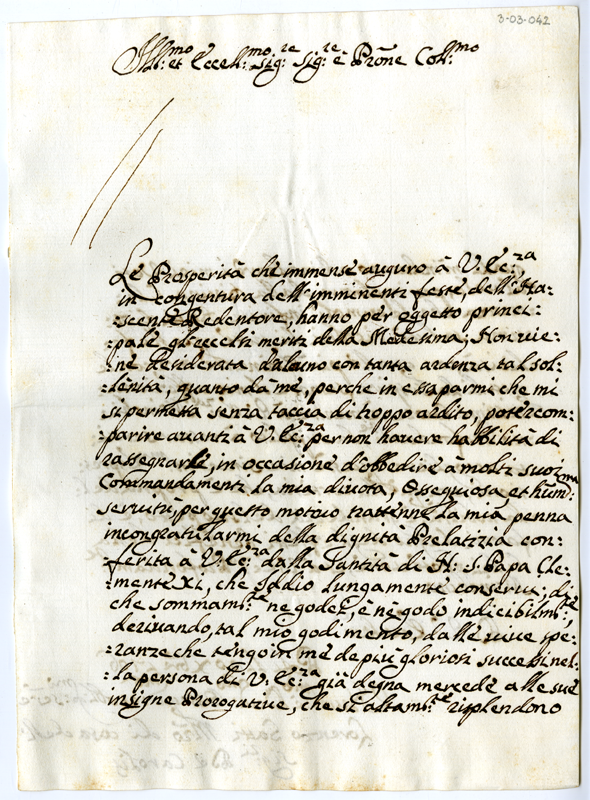 3-03-042
Ill:mo et Eccell:mo Sig:re Sig:re e Prone Coll:mo
Le Prosperità che immense auguro à V. Ec:za,
in congentura dell'imminenti feste, dell'Na-
scente Redentore, hanno per oggetto princi-
pale gl'eccelsi meriti della Medesima; Non vie-
ne desiderata d'alcuno con tanta ardenza tal sol-
lenità, quanto dà me, perche in essa parmi che mi
si permetta senza taccia di troppo ardito, poter com-
parire avanti à V. Ec:za per non havere habbilità di
rassegnarle, in occasione d'obbedire à molti suoi
Commandamenti la mia divota, Ossequiosa, et hum:ma
servitù, per questo motivo trattenni la mia penna
in congratularmi della dignità Prelatizia con-
ferita à V. Ec:za dalla Santità di N: S. Papa Cle-
mente XI, che Iddio lungamente conservi; di
che sommam:te ne godei, e ne godo indicibilm:te,
derivando, tal mio godimento, dalle vive spe-
ranze che tengo in me de più gloriosi successi nel-
la persona di V. Ec:za già degna mercede alle sue
insigne Prorogative, che sì altam:te risplendono